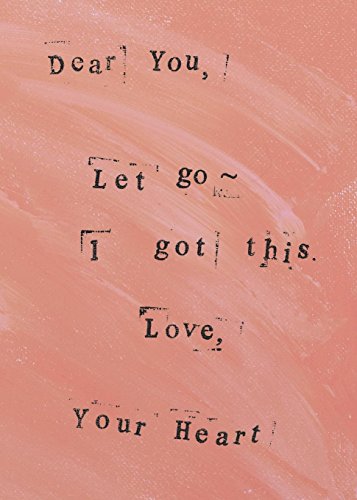 Dear You,
Let go ~
I got this.
Love,
Your Heart